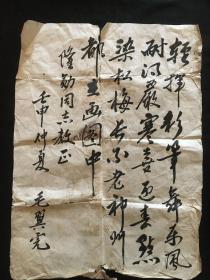 轻挥彩笔舞东风
耐得严寒喜迎春
染松梅长不老神州
都在画图中
隆勋同志教正
壬申仲夏 毛翼虎